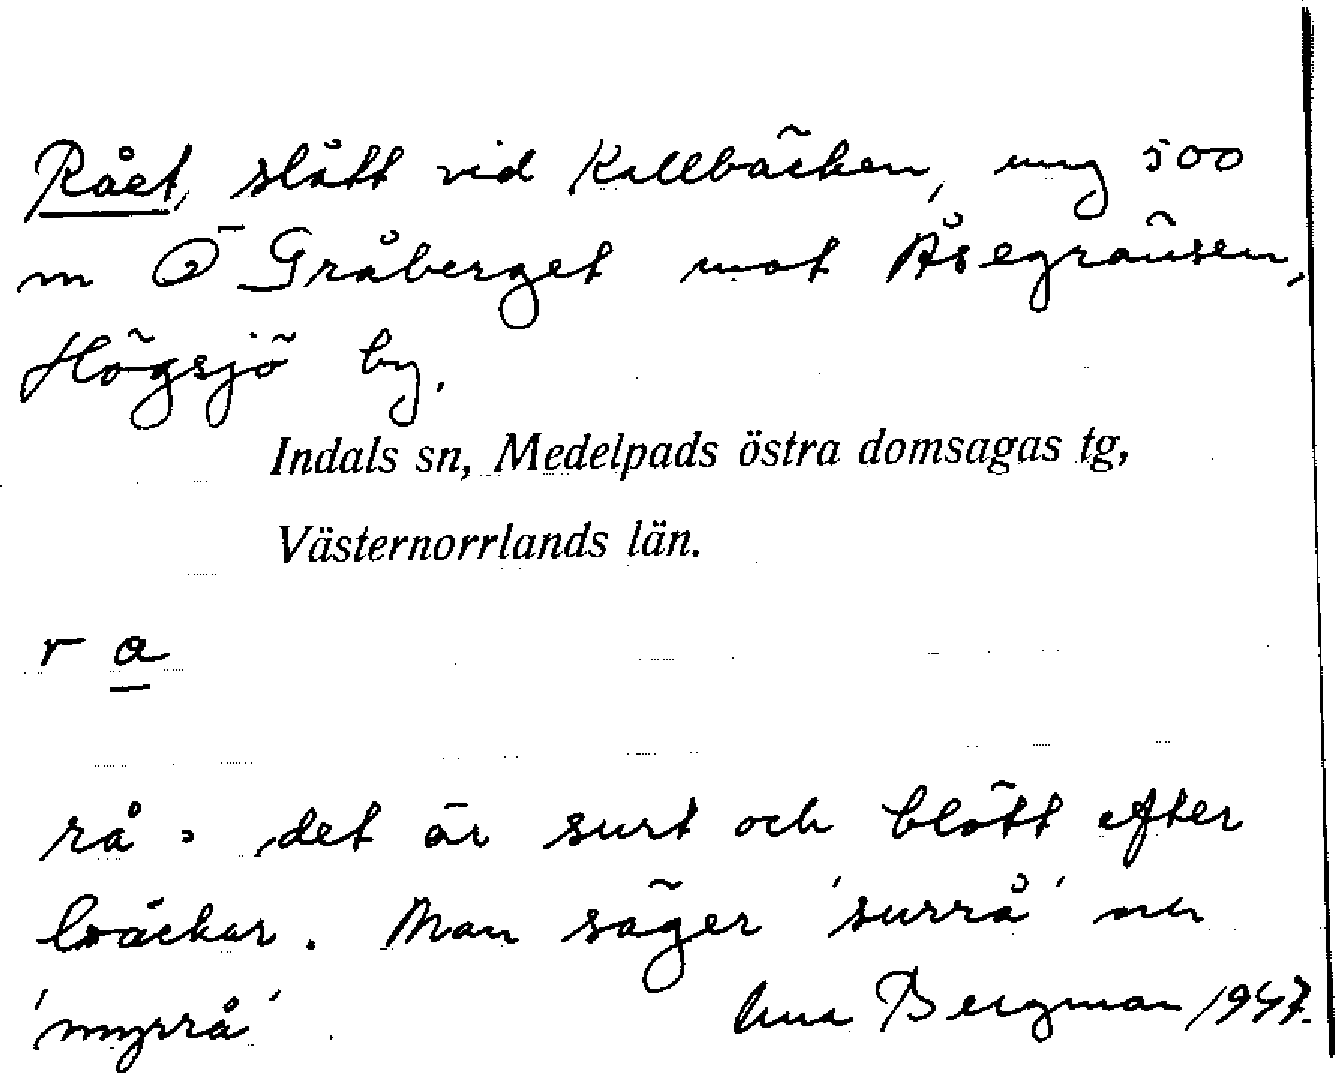 Rået, slått vid Kallbäcken, ung 500
m Ö Gråberget mot Åsegränsen,
Högsjö by.
Indals sn, Medelpads östra domsagas tg,
Västernorrlands län.
r a
rå: det är surt och blött efter
bäckar. Man säger 'surrå'
'myrrå'. Bergman 1947.